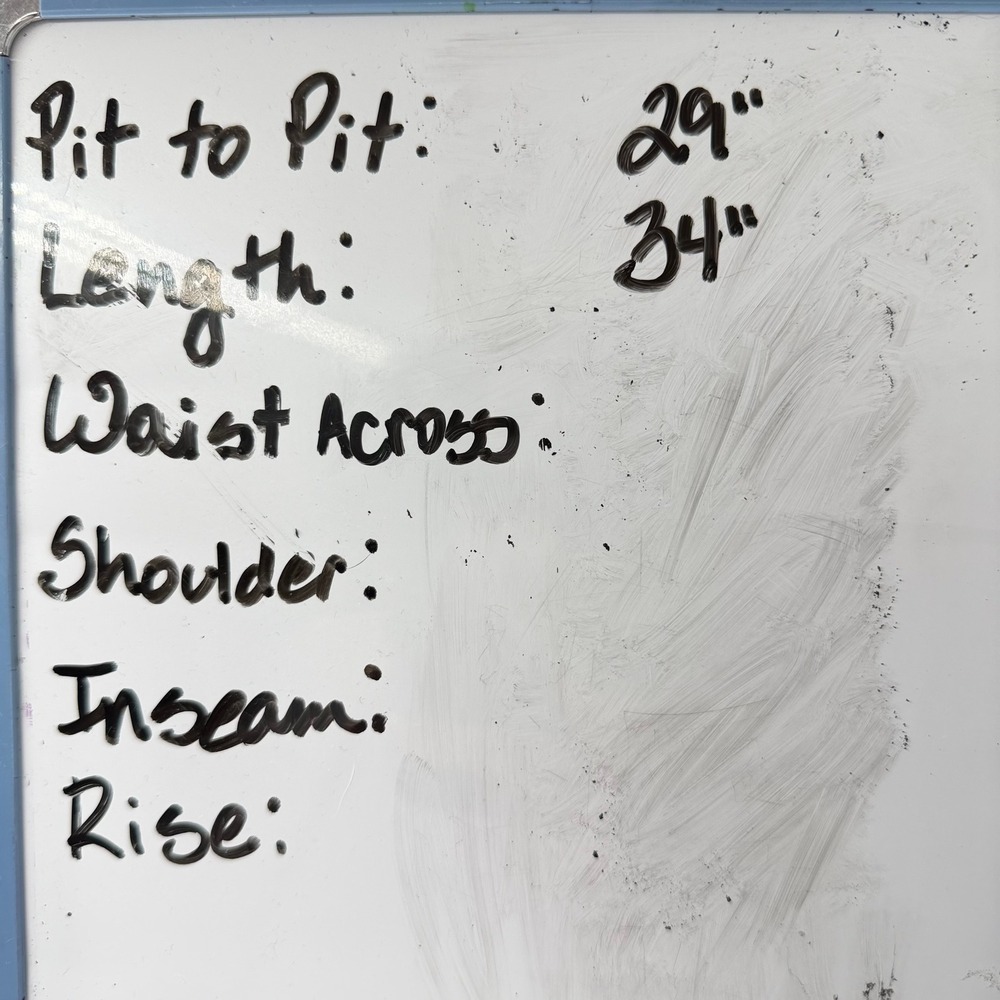 Pit to Pit: 29"
Length: 34"
Waist Across:
Shoulder:
Inseam:
Rise: